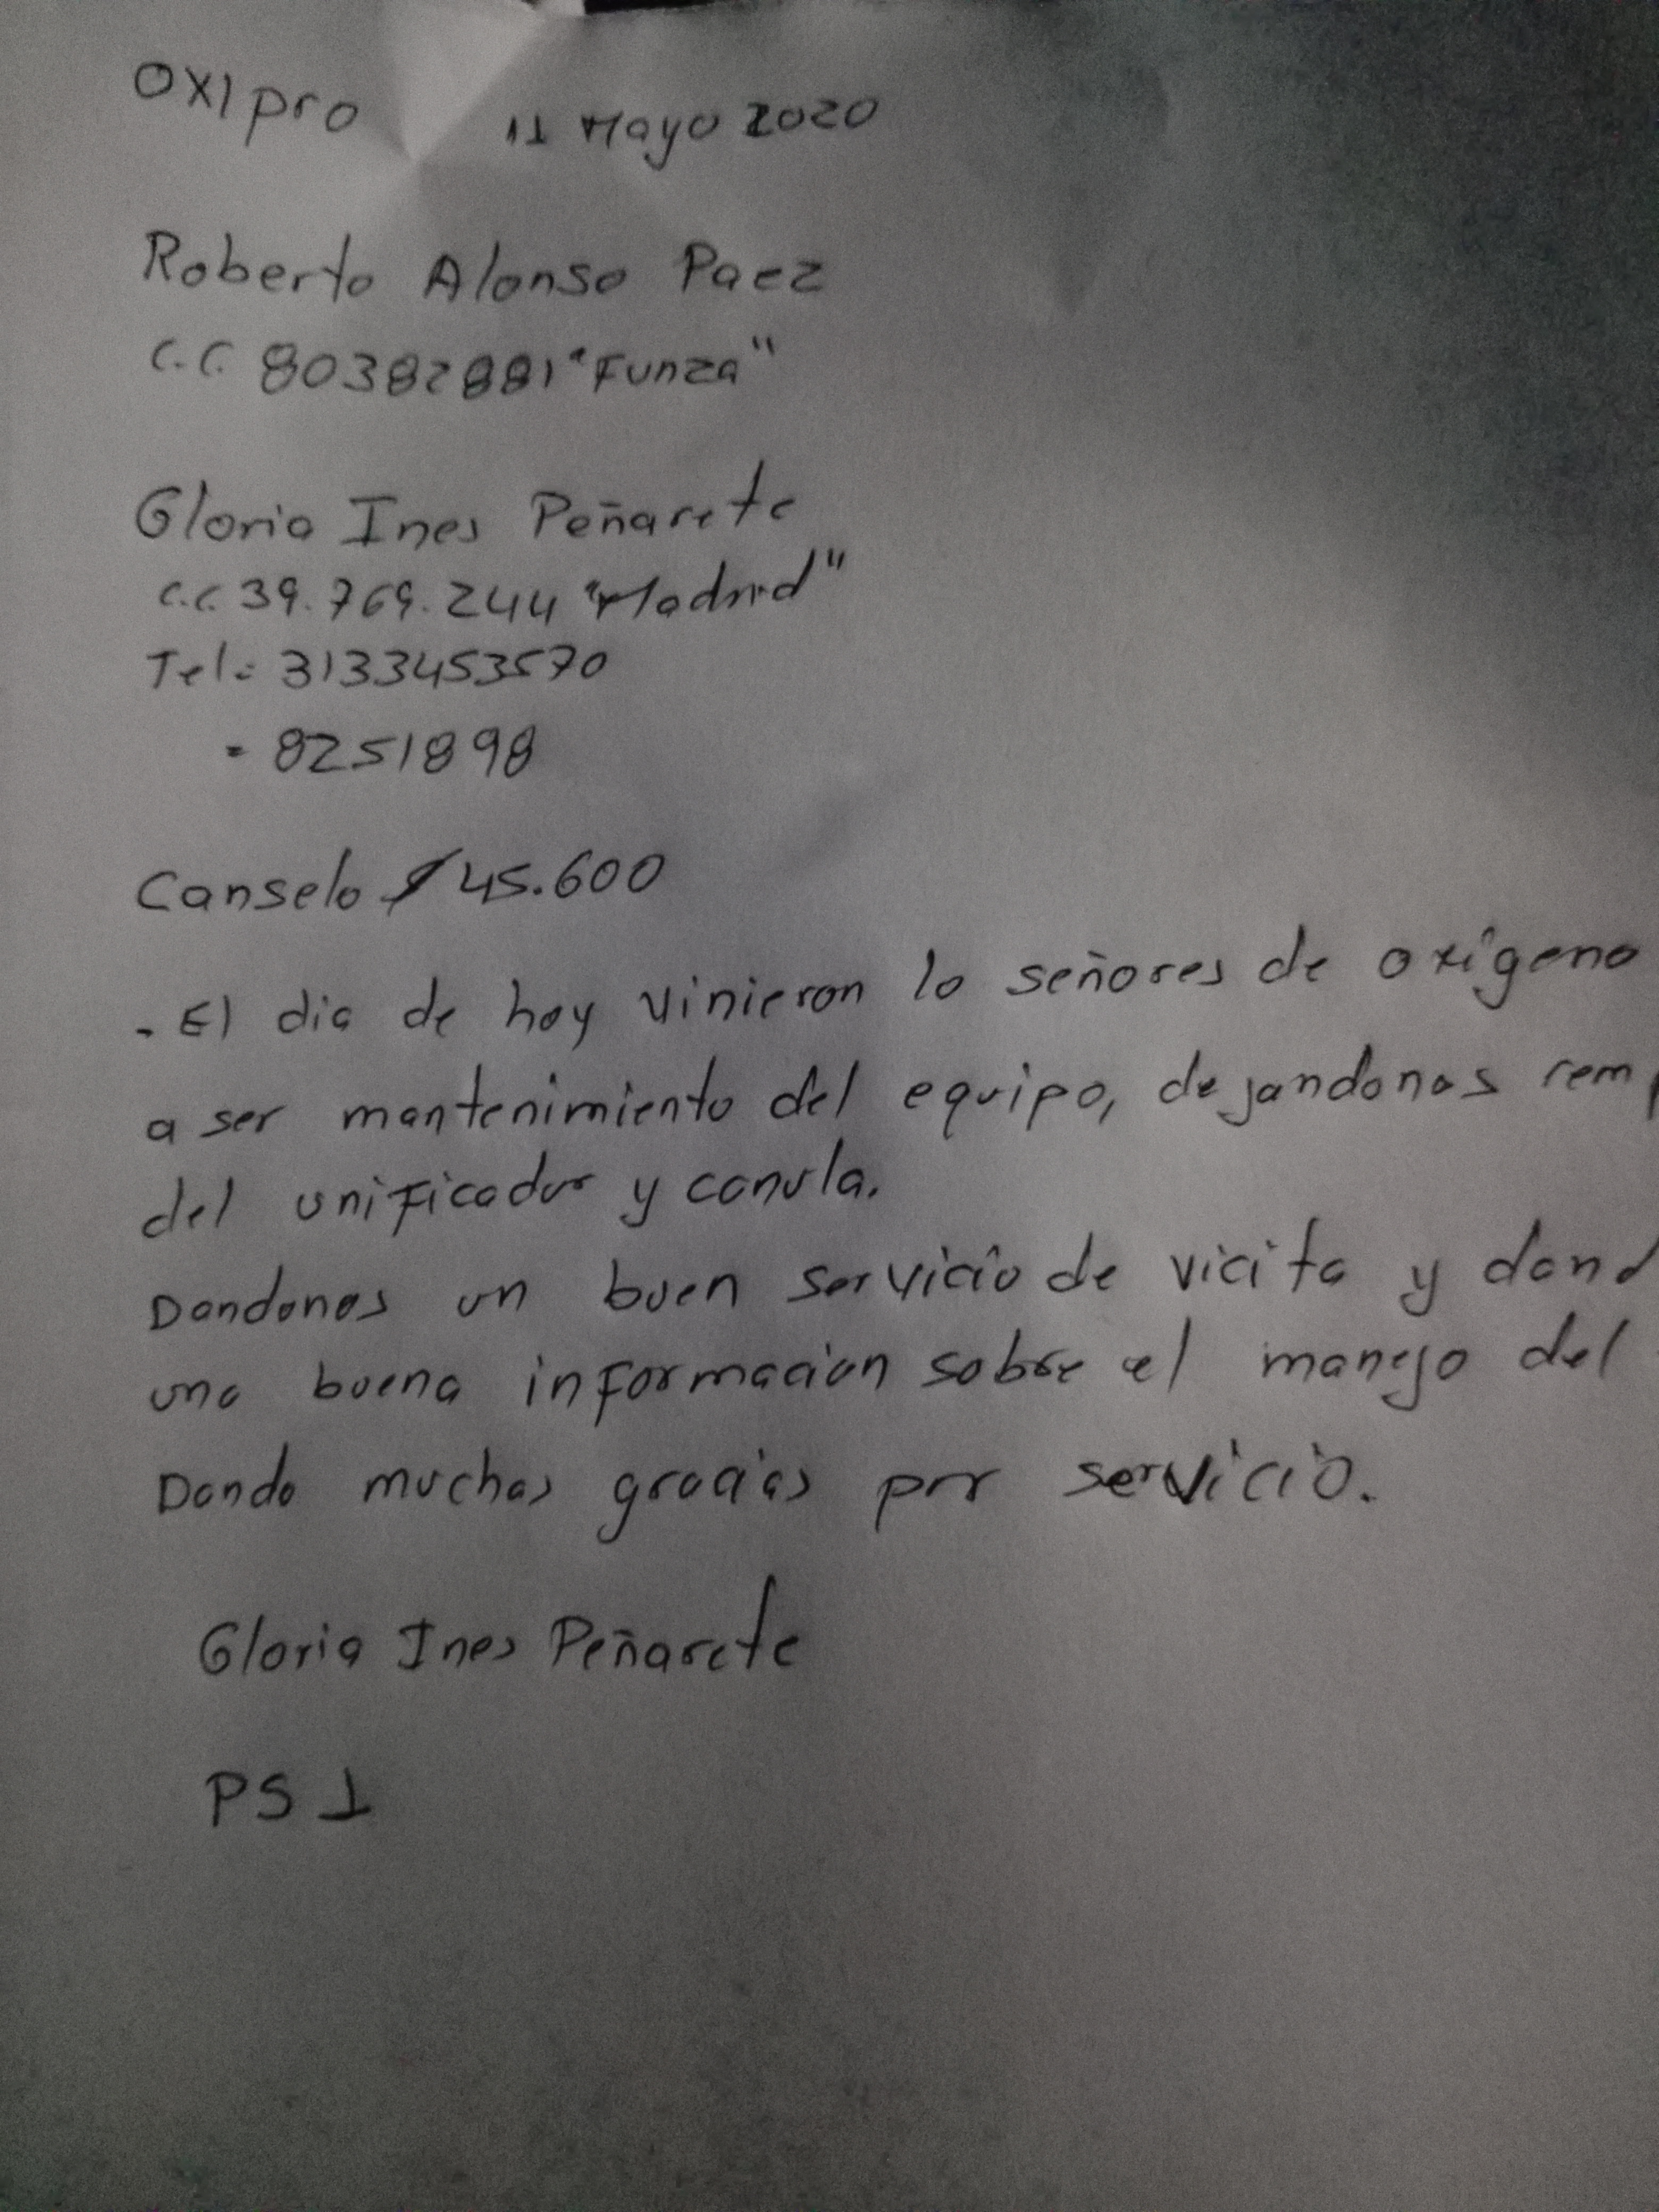 OXIpro 11 Mayo 2020
Roberto Alonso Paez
C.C. 80382881 "Funza"
Gloria Ines Peñarete
C.C. 39.769.244 "Madrid"
Tel: 3133453570
- 8251898
Canselo $45.600
- El dia de hoy vinieron lo señores de oxigeno
a ser mantenimiento del equipo, dejandonos rem
del unificador y canula.
Dandonos un buen servicio de vicita y dand
una buena informacion sobre el manejo del
Dando muchas gracias por servicio.
Gloria Ines Peñarete
PS 1